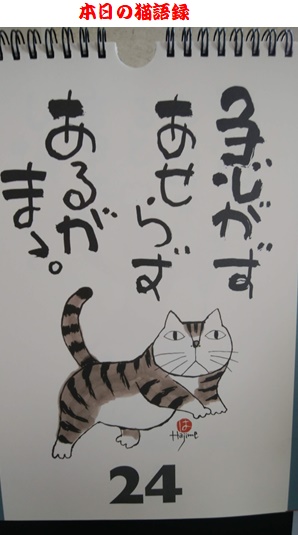 本日の猫語録
急がず
あせらず
あるが
まゝ。
は
Hajime
24